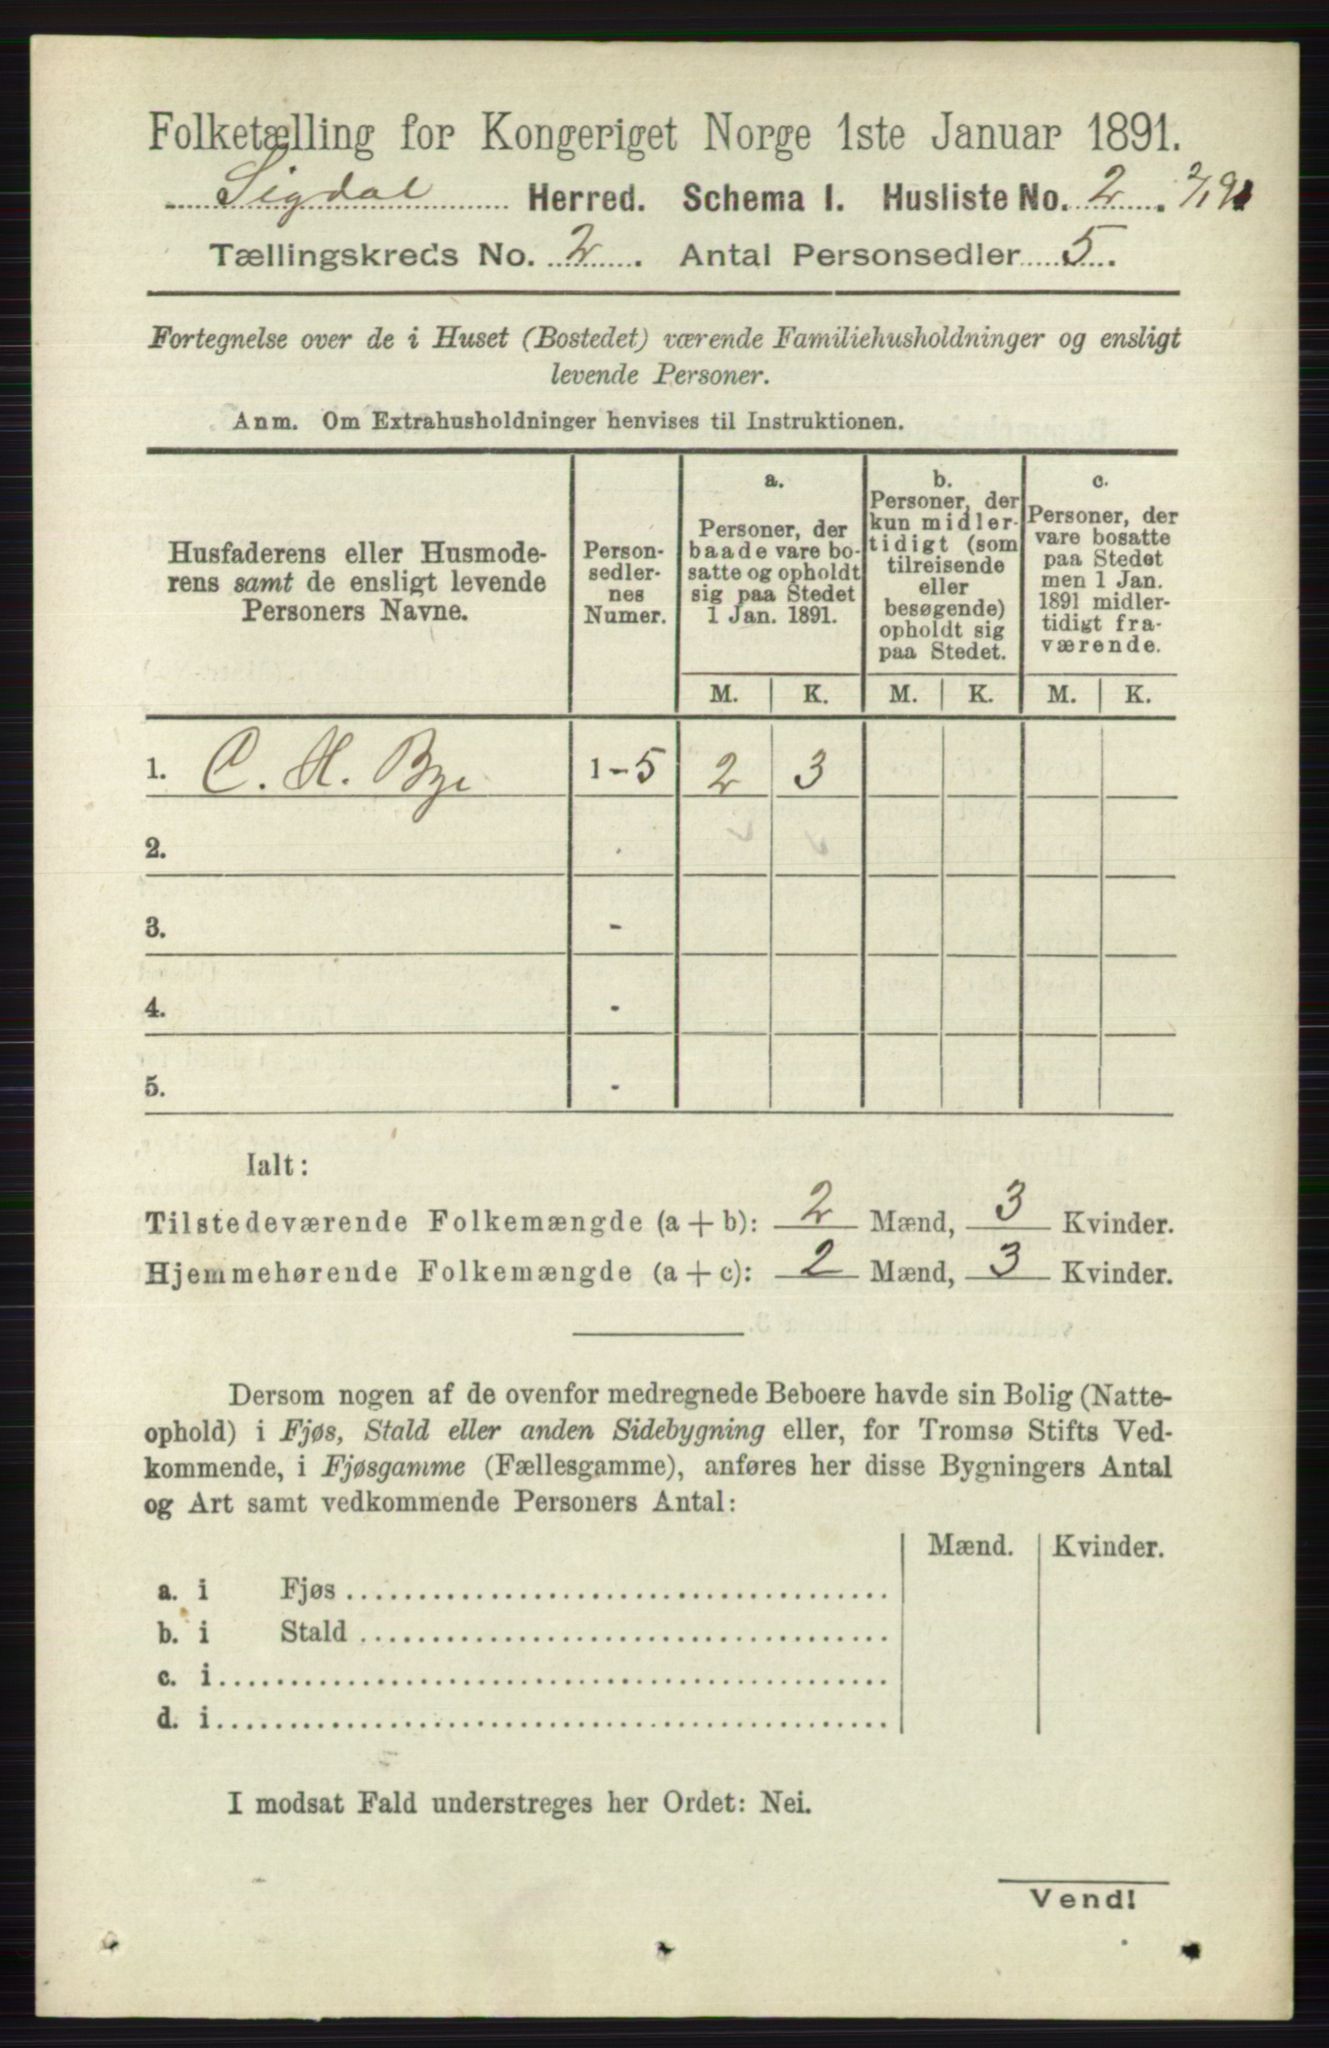 Folketælling for Kongeriget Norge 1ste Januar 1891.
Sigdal Herred. Schema I. Husliste No. 2.
Tællingskreds No. 2. Antal Personsedler 5.
Fortegnelse over de i Huset (Bostedet) værende Familiehusholdninger og ensligt
levende Personer.
Anm. Om Extrahusholdninger henvises til Instruktionen.
Husfaderens eller Husmode-
rens samt de ensligt levende
Personers Navne.
Person-
sedler-
nes
Numer.
a.
Personer, der
baade vare bo-
satte og opholdt
sig paa Stedet
1 Jan. 1891.
b.
Personer, der
kun midler-
tidigt (som
tilreisende
eller
besøgende)
opholdt sig
paa Stedet.
c.
Personer, der
vare bosatte
paa Stedet
men 1 Jan.
1891 midler-
tidigt fra-
værende.
M. K. M. K. M. K.
1. C. H. Bye 1-5 2 3
2.
3. -
4. -
5. -
Ialt:
Tilstedeværende Folkemængde (a + b): 2 Mænd, 3 Kvinder.
Hjemmehørende Folkemængde (a + c): 2 Mænd, 3 Kvinder.
Dersom nogen af de ovenfor medregnede Beboere havde sin Bolig (Natte-
ophold) i Fjøs, Stald eller anden Sidebygning eller, for Tromsø Stifts Ved-
kommende, i Fjøsgamme (Fællesgamme), anføres her disse Bygningers Antal
og Art samt vedkommende Personers Antal:
Mænd. Kvinder.
a. i Fjøs
b. i Stald
c. i
d. i
I modsat Fald understreges her Ordet: Nei.
Vend!